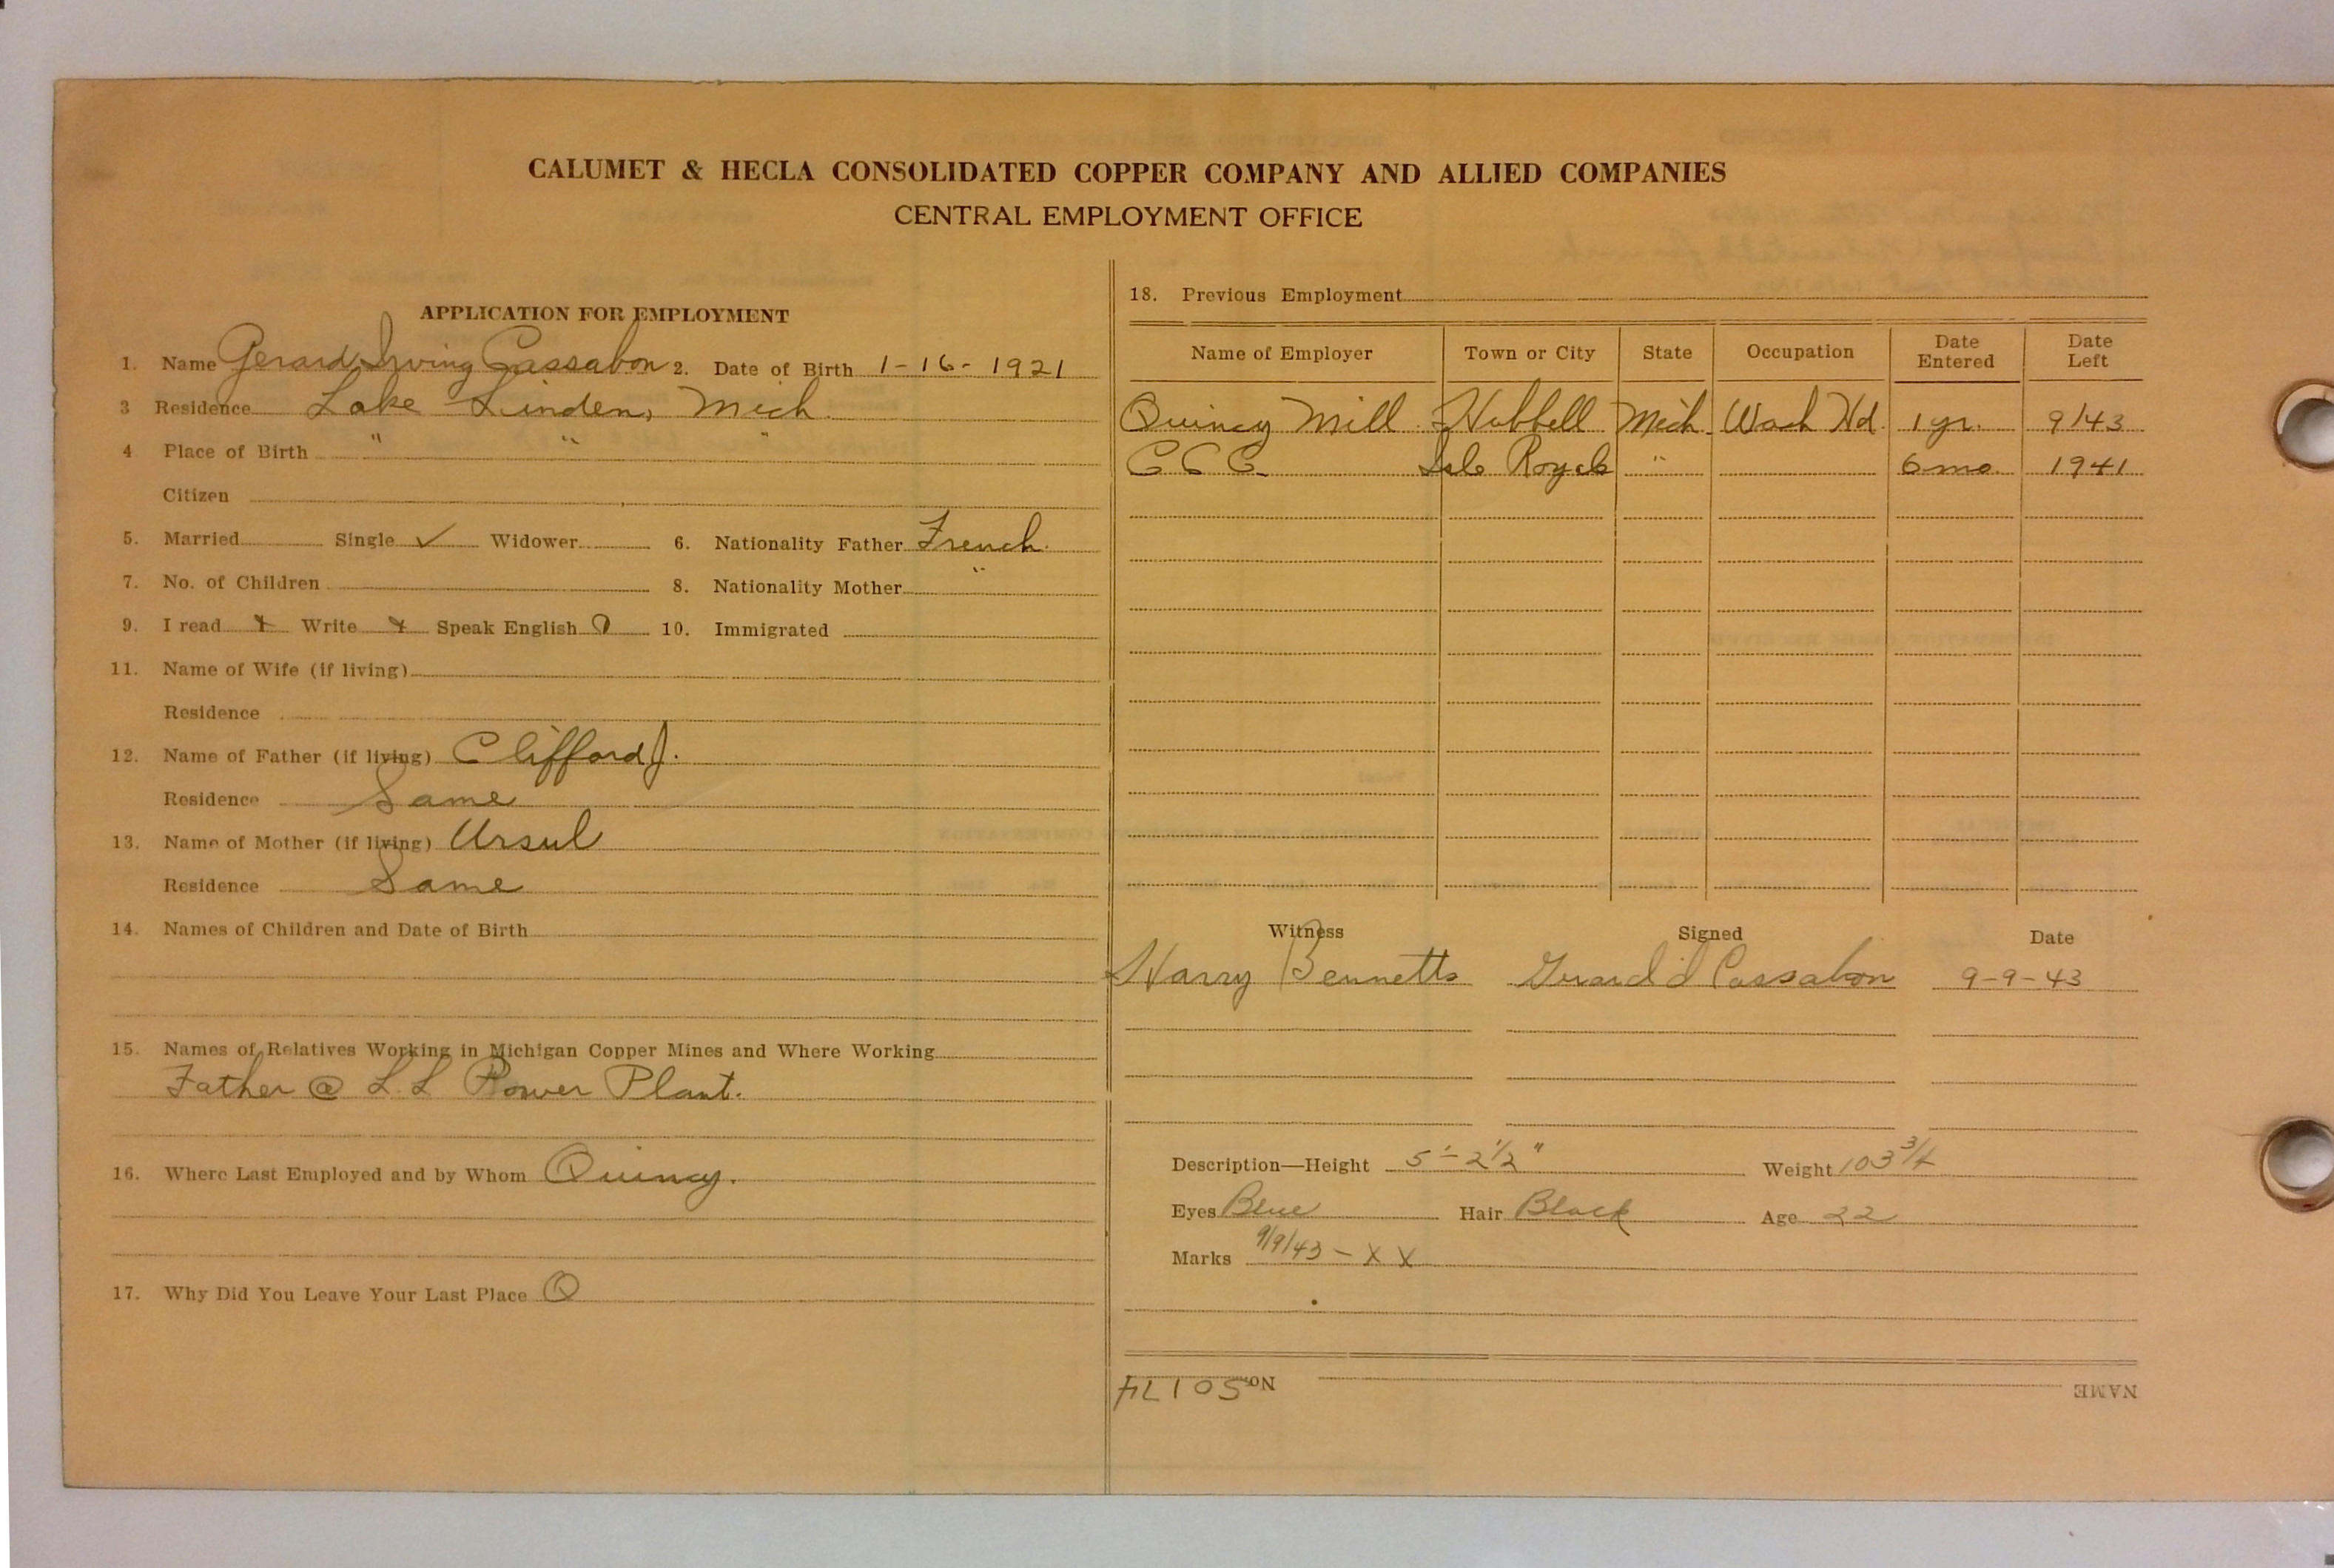 CALUMET & HECLA CONSOLIDATED COPPER COMPANY AND ALLIED COMPANIES
CENTRAL EMPLOYMENT OFFICE
APPLICATION FOR EMPLOYMENT
1. Name Gerard Irving Cassabon 2. Date of Birth 1-16-1921
3 Residence Lake Linden, Mich.
4 Place of Birth " " "
Citizen
5. Married Single ✓ Widower 6. Nationality Father French.
7. No. of Children 8. Nationality Mother "
9. I read Write Speak English 10. Immigrated
11. Name of Wife (if living)
Residence
12. Name of Father (if living) Clifford J.
Residence Same
13. Name of Mother (if living) Ursul
Residence Same
14. Names of Children and Date of Birth
15. Names of Relatives Working in Michigan Copper Mines and Where Working
Father @ L. L Power Plant.
16. Where Last Employed and by Whom Quincy.
17. Why Did You Leave Your Last Place Q
18. Previous Employment
Name of Employer Town or City State Occupation Date Entered Date Left
Quincy Mill Hubbell Mich. Wash Hd. 1 yr. 9/43
C C C Isle Royale " 6 mo. 1941
Witness Signed Date
Harry Bennetts Gerard I Cassabon 9-9-43
Description—Height 5'-2 1/2" Weight 103 3/4
Eyes Blue Hair Black Age 22
Marks 9/9/43 - X X
NAME No.